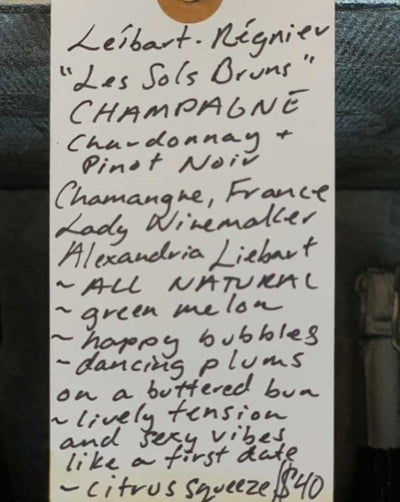 Leíbart-Régnier
"Les Sols Bruns"
CHAMPAGNE
Chardonnay +
Pinot Noir
Chamangne, France
Lady Winemaker
Alexandria Liebart
~ ALL NATURAL
~ green melon
~ happy bubbles
~ dancing plums
on a buttered bun
~ lively tension
and sexy vibes
like a first date
~ citrus squeeze $40